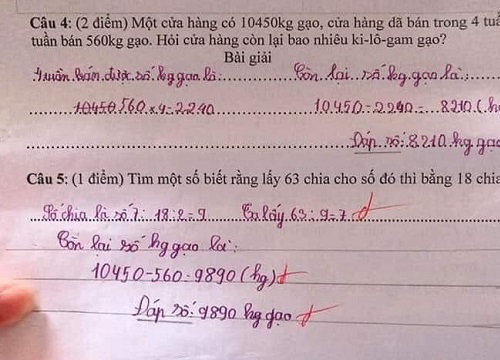 Câu 4: (2 điểm) Một cửa hàng có 10450kg gạo, cửa hàng đã bán trong 4 tuầ
tuần bán 560kg gạo. Hỏi cửa hàng còn lại bao nhiêu ki-lô-gam gạo?
Bài giải
4 tuần bán được số kg gạo là: Còn lại số kg gạo là:
10450 560 x 4 = 2240 10450 - 2240 = 8210 (k
Đáp số: 8210 kg gạo
Câu 5: (1 điểm) Tìm một số biết rằng lấy 63 chia cho số đó thì bằng 18 chia
Số chia là số 7: 18 : 2 = 9 Ta lấy 63 : 9 = 7
Còn lại số kg gạo là:
10450 - 560 = 9890 (kg)
Đáp số: 9890 kg gạo